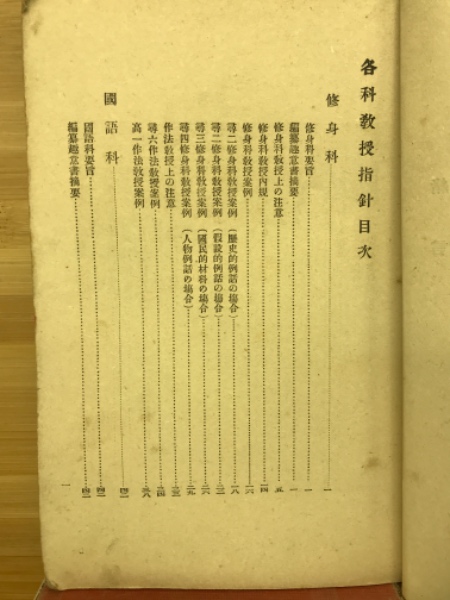 各科教授指針目次
修身科……一
修身科要旨……一
編纂趣意書摘要……一
修身科教授上の注意……五
修身科教授內規……一四
修身科教授案例……一六
尋二修身科教授案例（歷史的例話の場合）……一八
尋二修身科教授案例（假設的例話の場合）
尋三修身科教授案例（國民的材料の場合）……二六
尋四修身科教授案例（人物例話の場合）……二九
作法教授上の注意
尋六作法教授案例
高一作法教授案例……三八
國語科
國語科要旨
編纂趣意書摘要
一